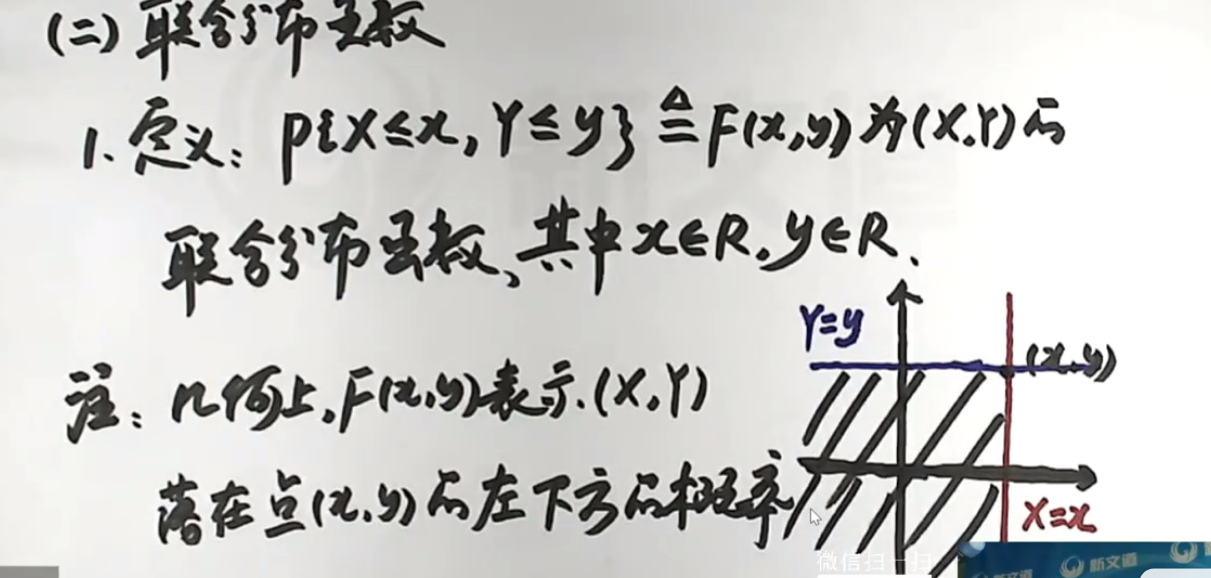 (二) 联合分布函数
1. 定义: P{X≤x, Y≤y} ≜ F(x,y) 为(X,Y)的
联合分布函数、其中x∈R,y∈R.
Y=y
(x,y)
注: 几何上,F(x,y)表示(X,Y)
落在点(x,y)的左下方的概率
X=x
微信扫一扫
新文道